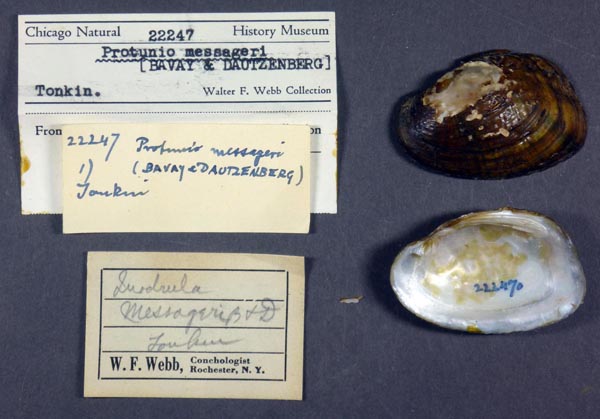 Chicago Natural 22247 History Museum
Protunio messageri
[BAVAY & DAUTZENBERG]
Tonkin.
Walter F. Webb Collection
From
22247 Protunio messageri
1) (BAVAY & DAUTZENBERG)
Tonkin
Quadrula
Messageri B & D
Tonkin
W. F. Webb, Conchologist
Rochester, N. Y.
222470